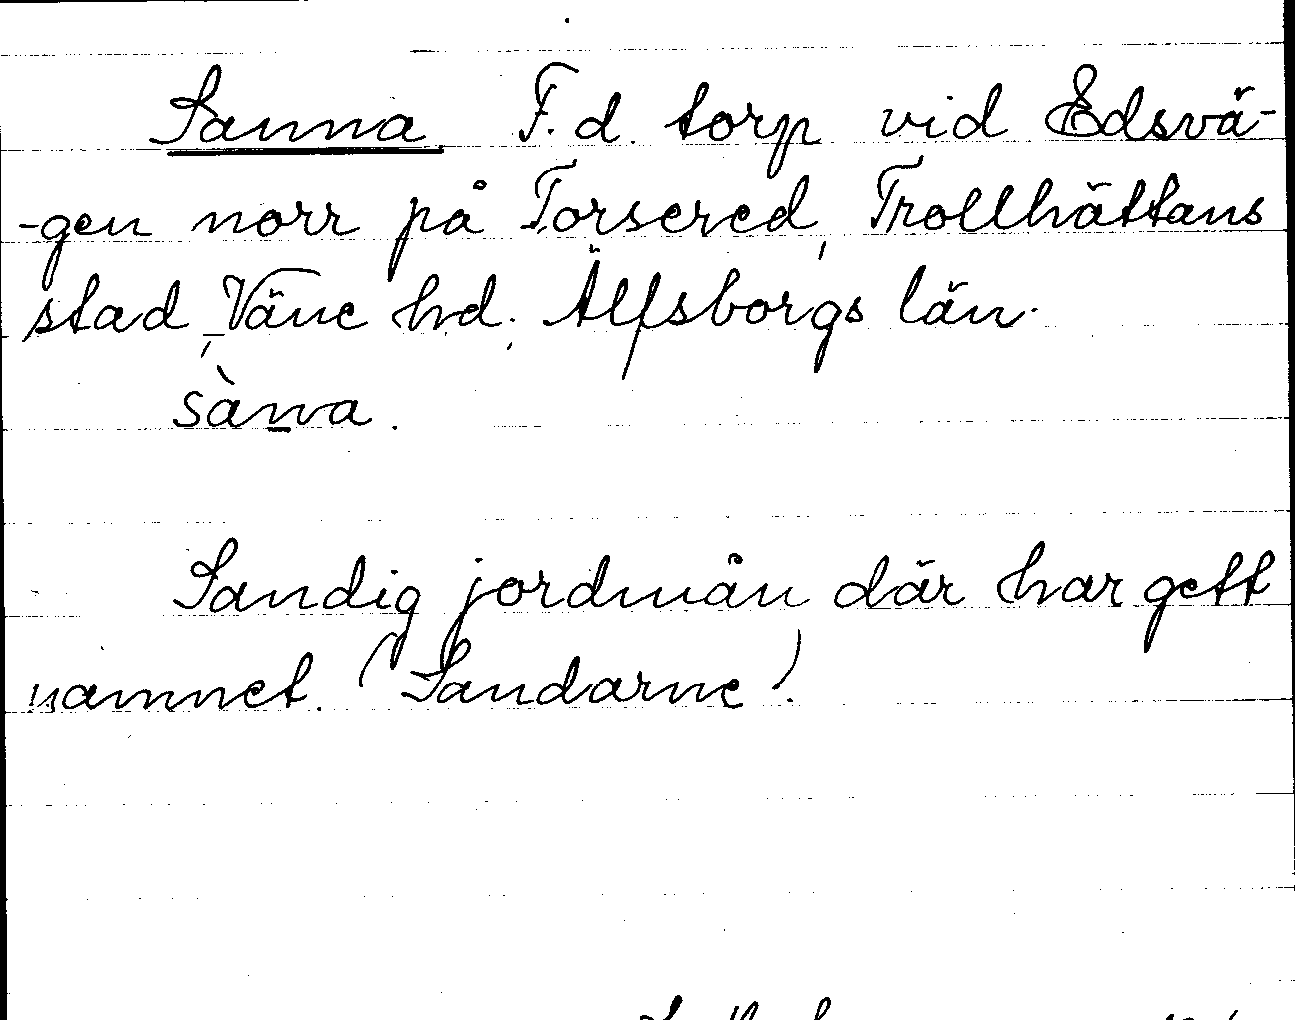 Sanna F.d. torp vid Edsvä-
-gen norr på Torsered, Trollhättans
stad, Väne hd. Älfsborgs län.
sànna.
Sandig jordmån där har gett
namnet. (Sandarne).